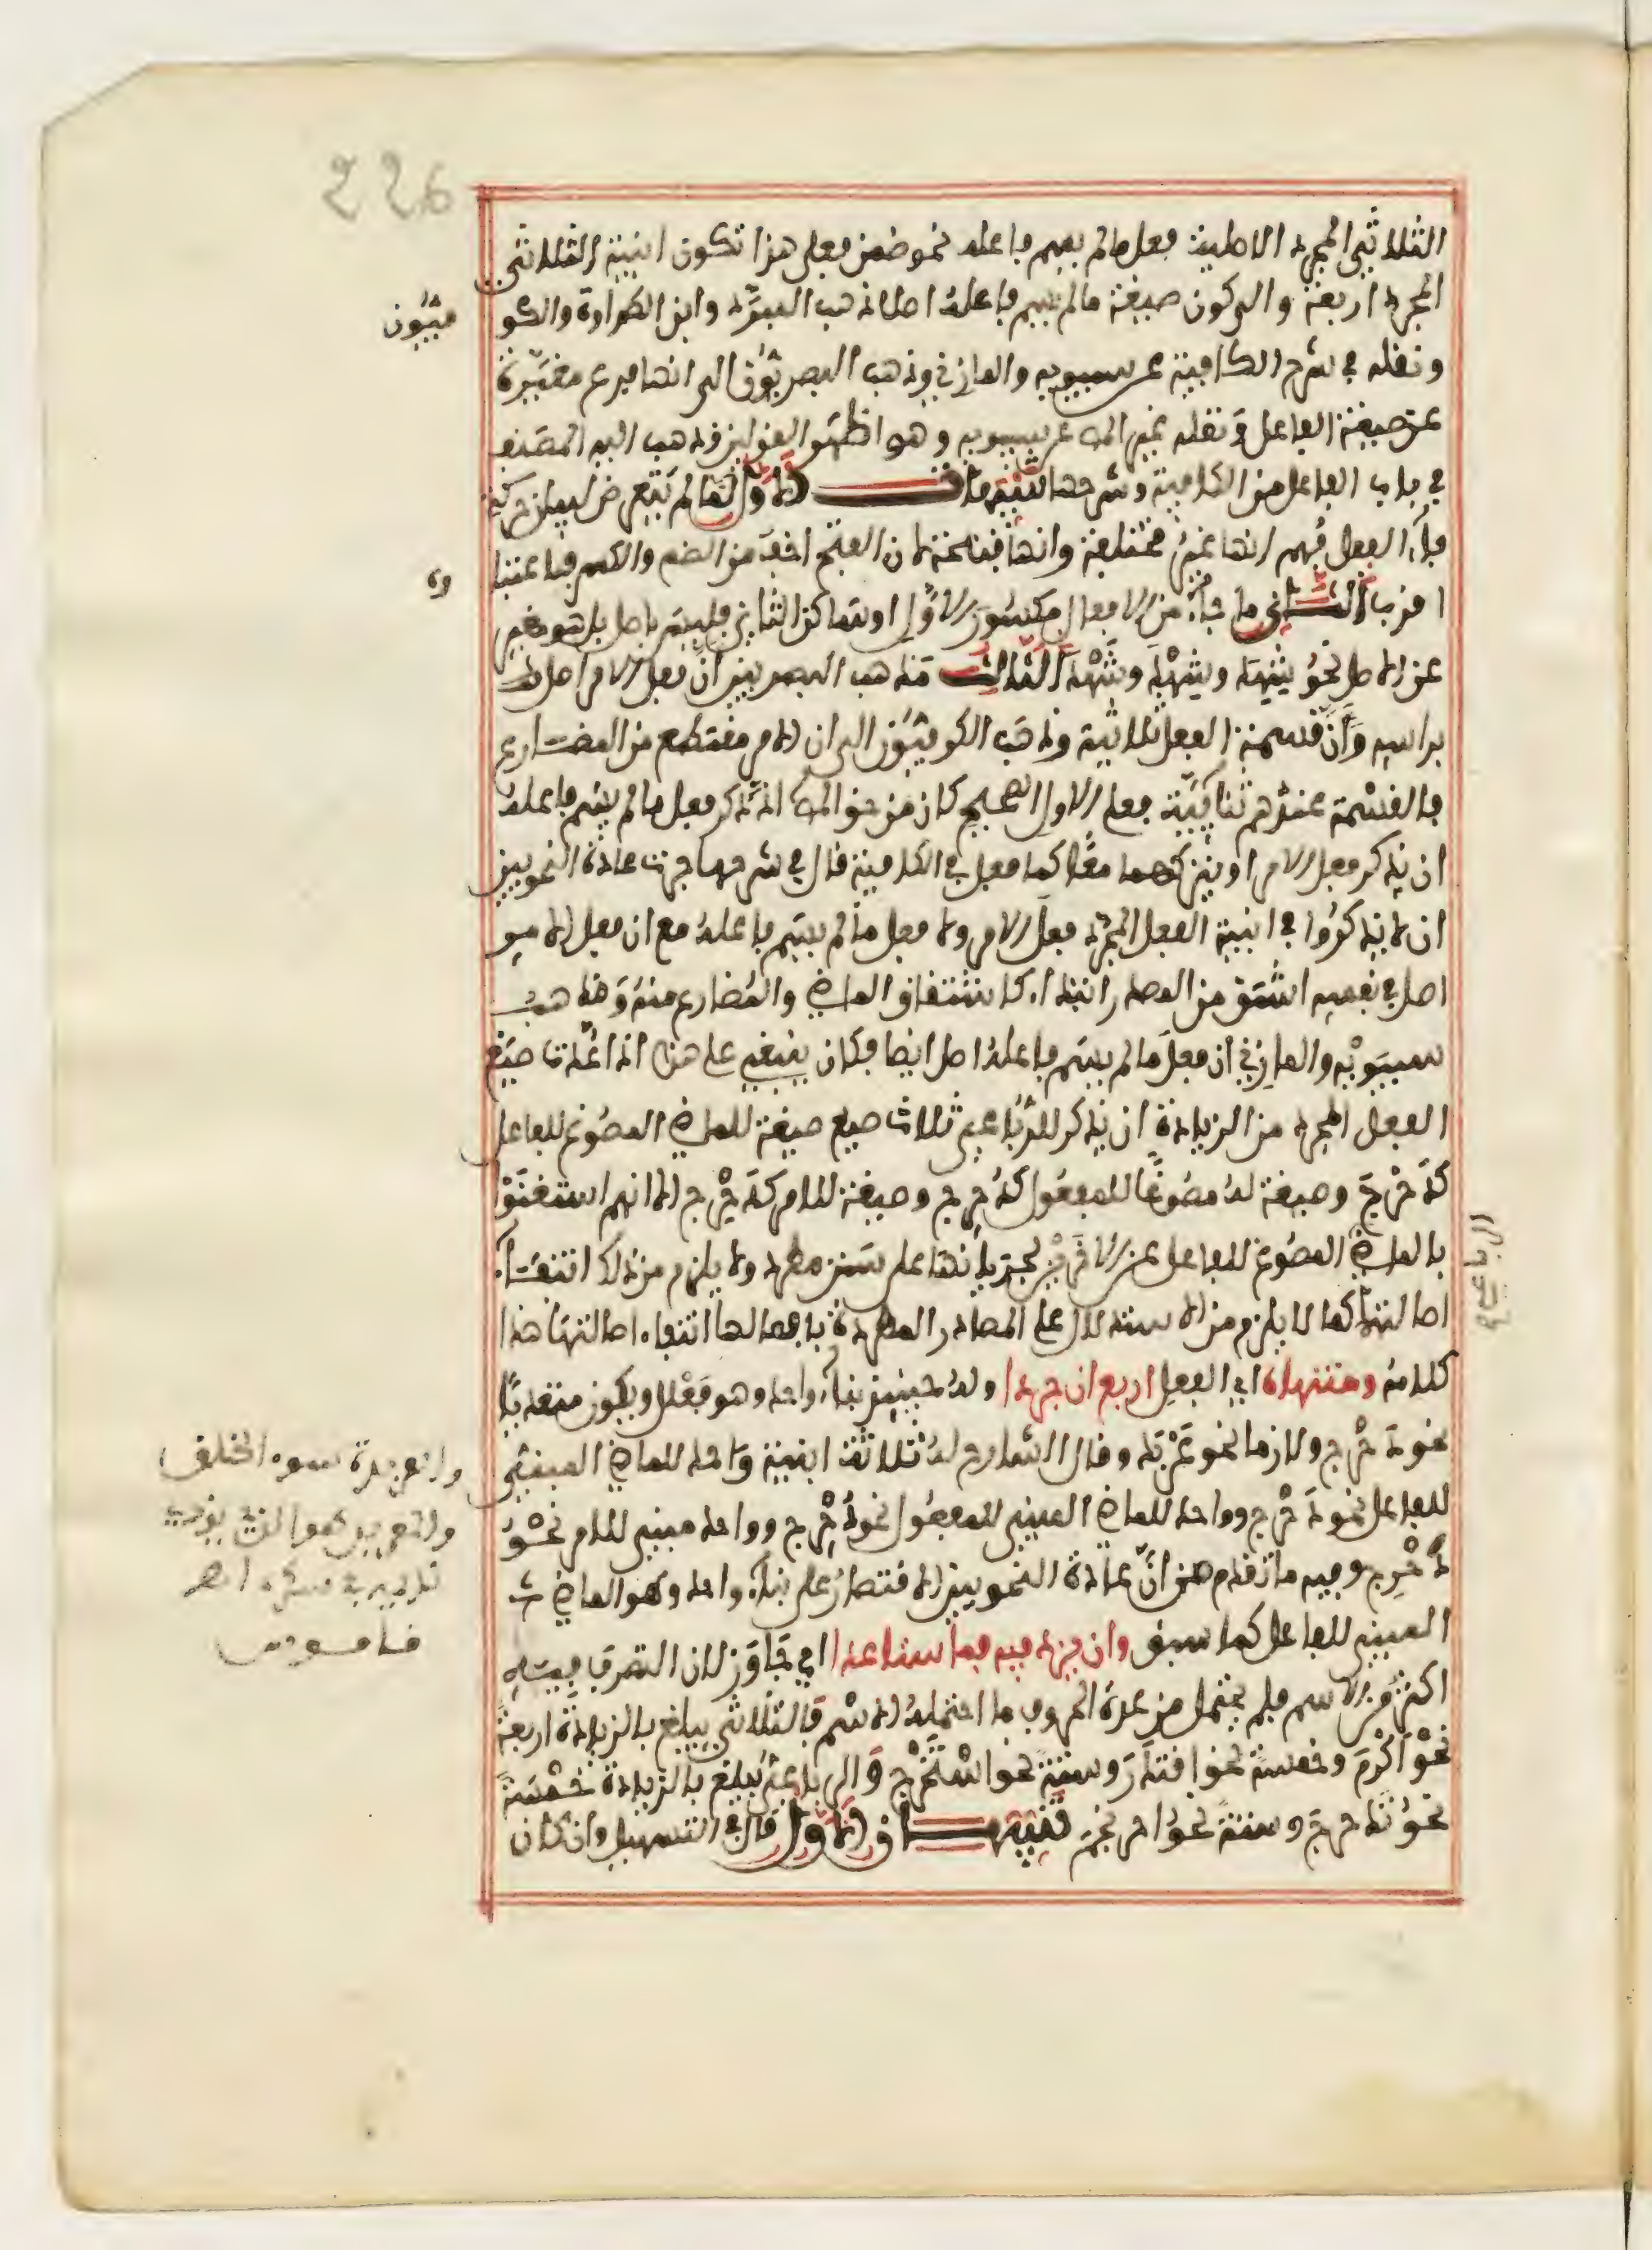 226
الثلاثي المجرد الاصلية فعل ما لم يسم فاعله نحو ضمن فعلى هذا تكون ابنية الثلاثي
المجرد اربعة والى كون صيغة ما لم يسم فاعله اصلا ذهب المبرد وابن الطراوة والكو
فيون
ونقله في شرح الكافية عن سيبويه والمازني وذهب البصريون الى انها فرع مغيرة
عن صيغة الفاعل ونقله غير المص عن سيبويه وهو اظهر القولين وذهب اليه المصنف
في باب الفاعل من الكافية وشرحها تنبيهات الاول لما لم يتعرض لبيان حركة
فاء الفعل فهم انها غير مختلفة وانها فتحة لان الفتح اخف من الضم والكسر فاعتبا
ره
اقرب الثاني ما جاء من الافعال مكسور الاول او ساكن الثاني فليس باصل بل هو مغير
عن الاصل نحو شهد وشهد وشهد الثالث مذهب البصريين ان فعل الامر اصل
براسه وان قسمة الفعل ثلاثية وذهب الكوفيون الى ان الامر مقتطع من المضارع
فالقسمة عندهم ثنائية فعلى الاول الصحيح كان من حق المص اذ ذكر فعل ما لم يسم فاعله
ان يذكر فعل الامر او يتركهما معا كما فعل في الكافية قال في شرحها جرت عادة النحويين
ان لا يذكروا في ابنية الفعل المجرد فعل الامر ولا فعل ما لم يسم فاعله مع ان فعل الامر
اصل في نفسه اشتق من المصدر ابتداء كاشتقاق الماضي والمضارع منه ومذهب
سيبويه والمازني ان فعل ما لم يسم فاعله اصل ايضا فكان ينبغي على هذا اذا عدت صيغ
الفعل المجرد من الزيادة ان يذكر للرباعي ثلاث صيغ صيغة للماضي المصوغ للفاعل
كدحرج وصيغة له مصوغا للمفعول كدحرج وصيغة للامر كدحرج الا انهم استغنوا
بالماضي المصوغ للفاعل عن الاخرين لجريانهما على سنن مطرد ولا يلزم من ذلك انتفاء
اصالتهما كما لا يلزم من الاستدلال على المصادر المطردة بافعالها انتفاء اصالتها هذا
كلامه ومنتهاه اي الفعل اربع ان جردا وله حينئذ بناء واحد وهو فعلل ويكون متعديا
الرباعي
نحو دحرج ولازما نحو عربد وقال الشارح له ثلاثة ابنية واحد للماضي المبني
للفاعل نحو دحرج وواحد للماضي المبني للمفعول نحو دحرج وواحد مبني للامر نحو
دحرج وفيه ما تقدم من ان عادة النحويين الاقتصار على بناء واحد وهو الماضي
المبني للفاعل كما سبق وان يزد فيه فما ستا عدا اي جاوز لان التصرف فيه
اكثر من الاسم فلم يحتمل من عدة الحروف ما احتمله الاسم فالثلاثي يبلغ بالزيادة اربعة
نحو اكرم وخمسة نحو اقتدر وستة نحو استخرج والرباعي يبلغ بالزيادة خمسة
نحو تدحرج وستة نحو احرنجم تنبيهان الاول قال في التسهيل وان كان
والعربدة سوء الخلق
والعربيد هو الذي يوذي
نديمه في سكره اهـ
قاموس